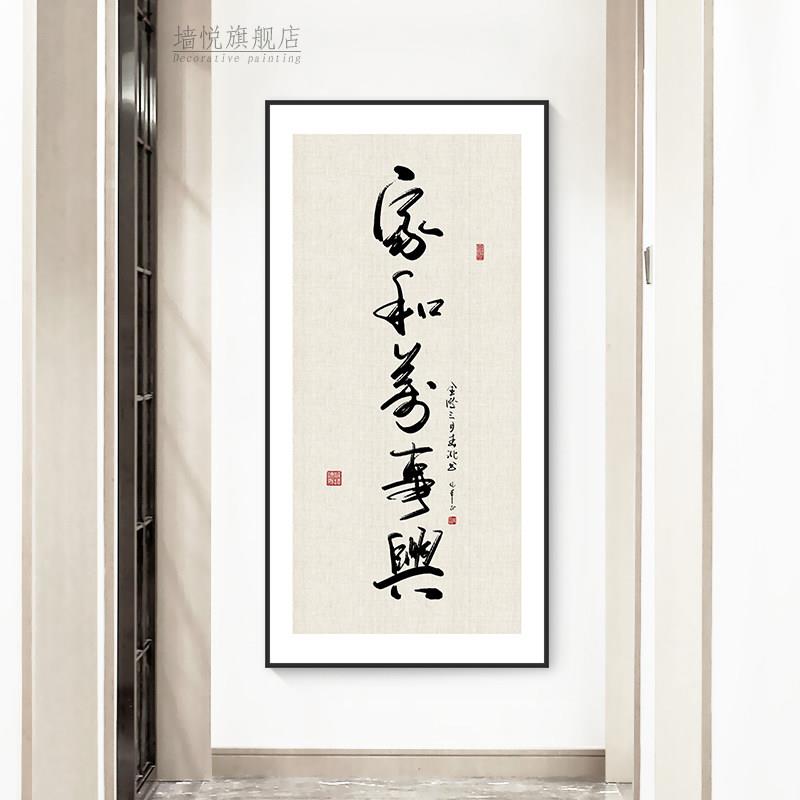 墙悦旗舰店
Decorative painting
家和萬事興